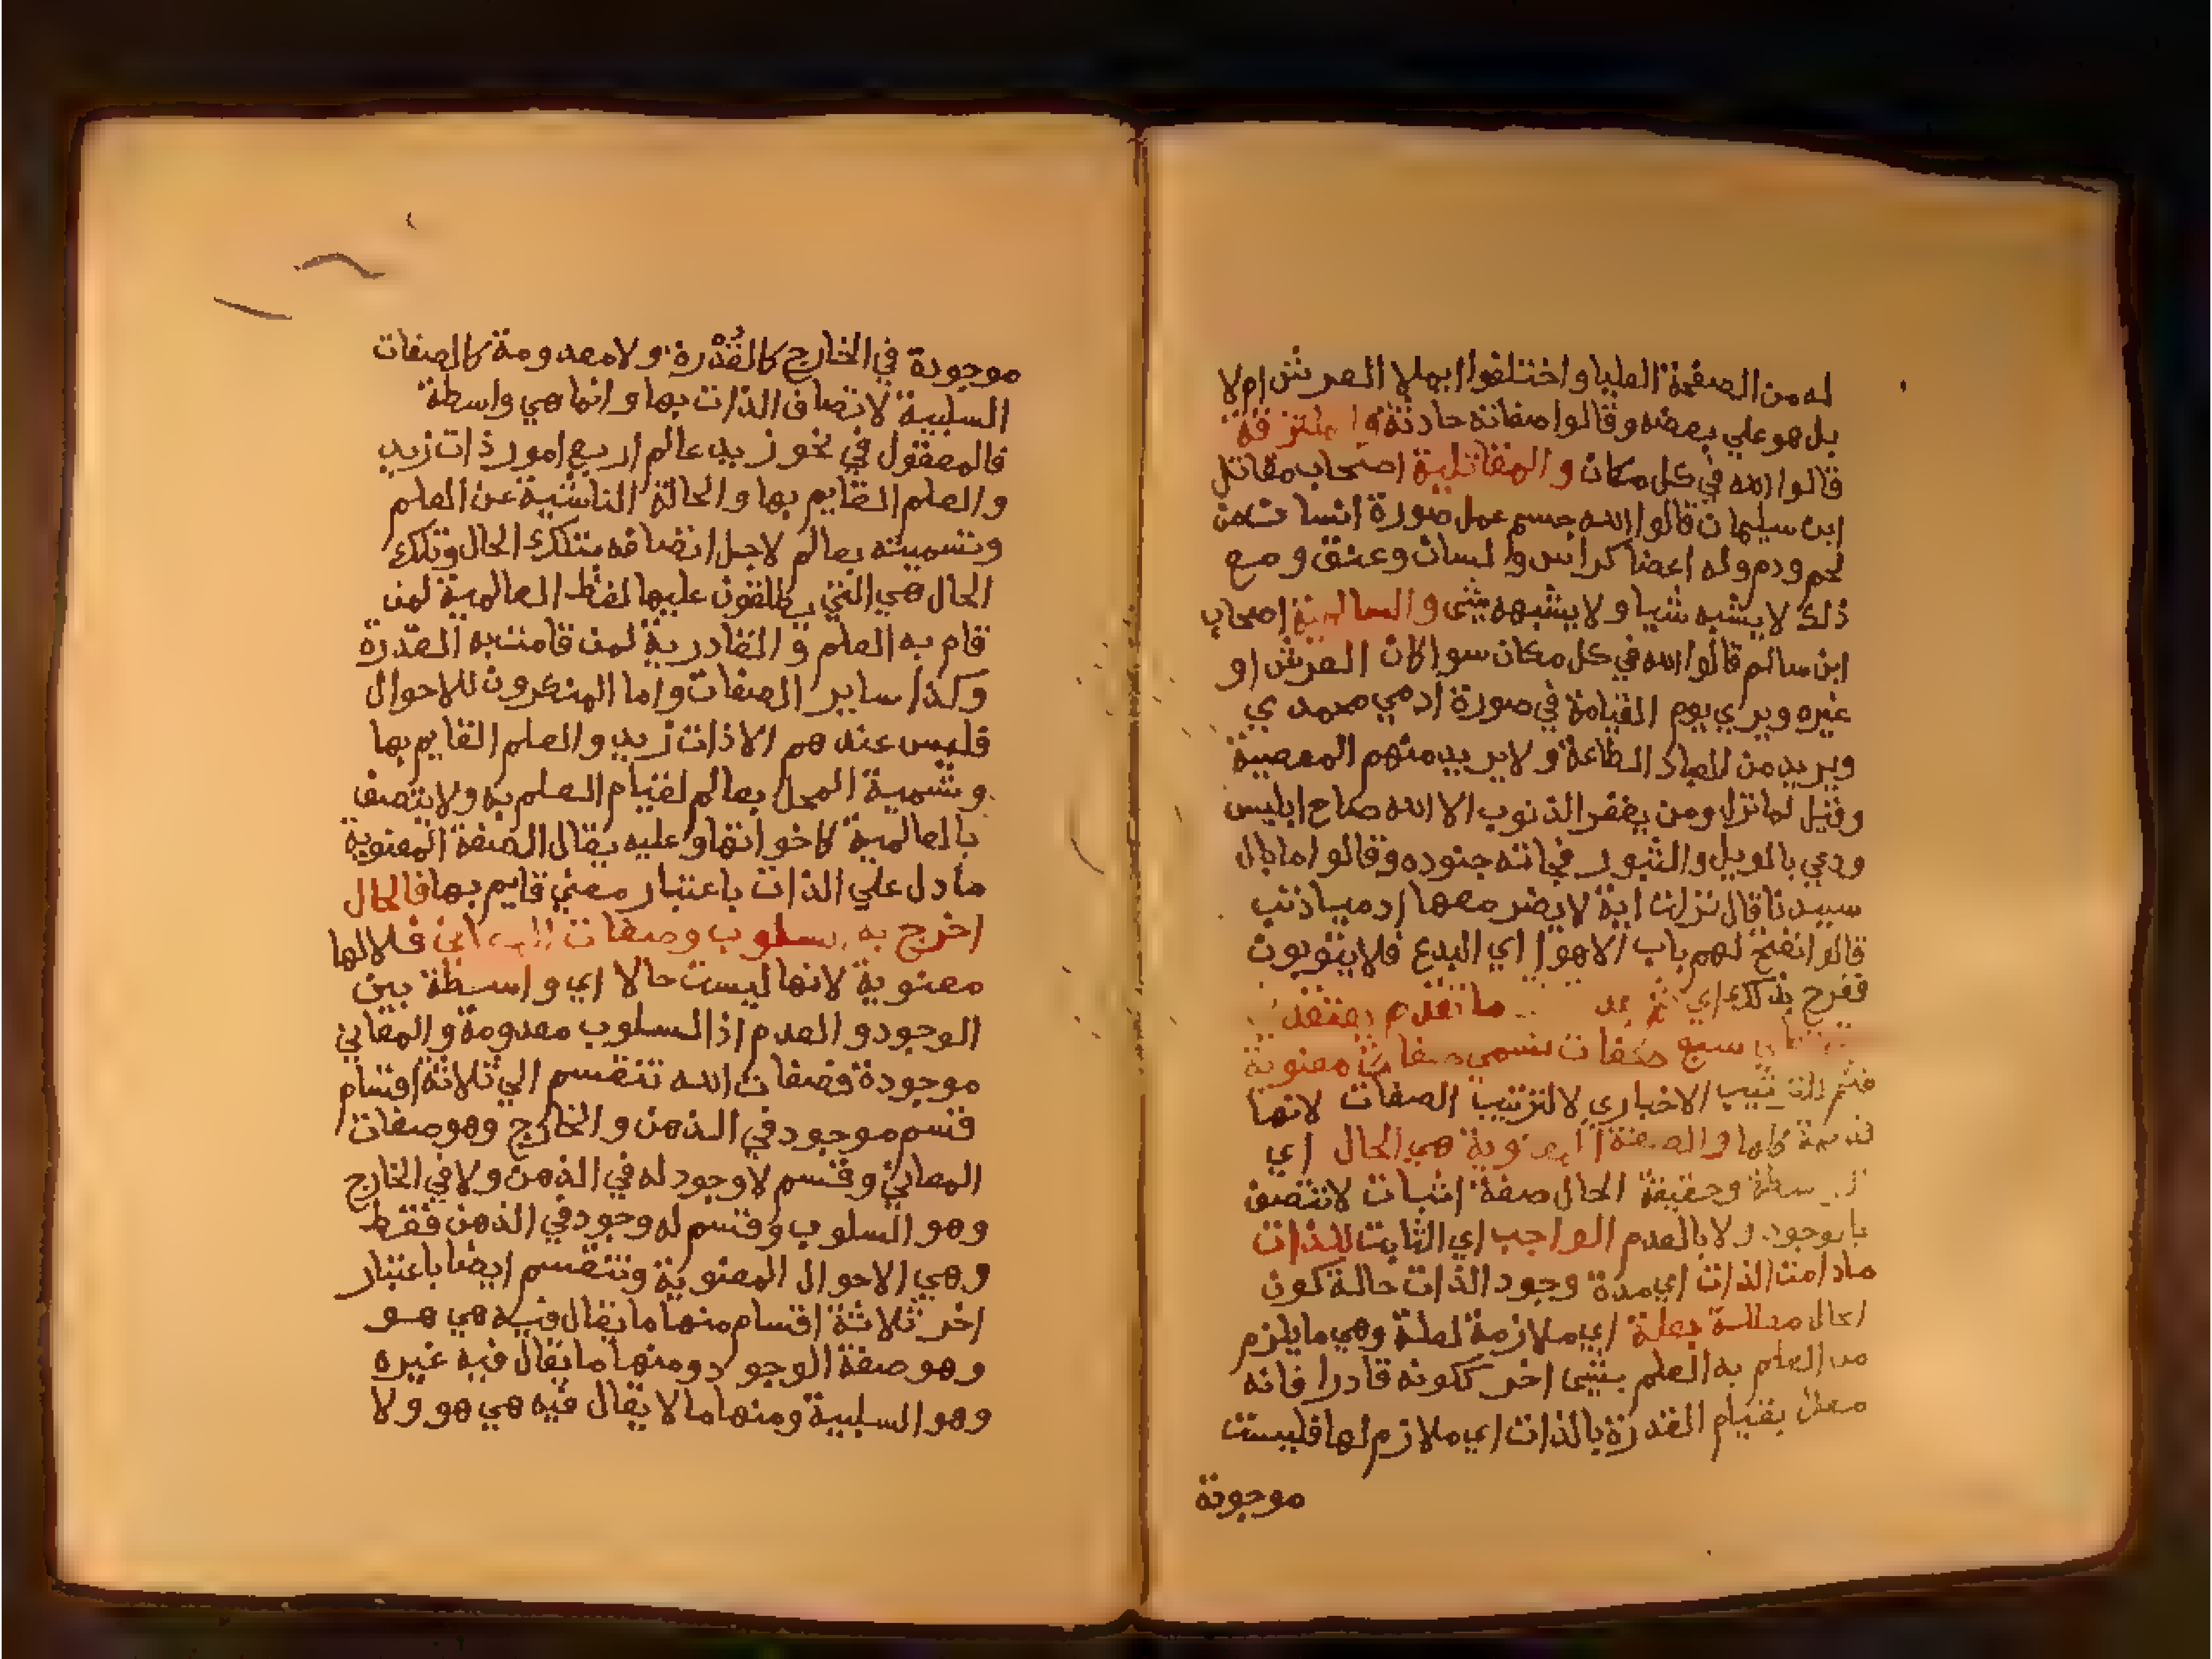 له من الصفحة العليا واختلفوا ايهلا العرش ام لا
بل هو علي بعضه وقالوا صفاته حادثة
قالوا الله في كل مكان والمقاتلية اصحاب مقاتل
ابن سليمان قالوا الله جسم عمل صورة انسان من
لحم ودم وله اعضا كراس ولسان وعنق ومع
ذلك لا يشبه شيا ولا يشبهه شى والسالمية اصحاب
ابن سالم قالوا الله في كل مكان سوا كان العرش او
غيره ويري يوم القيامة في صورة ادمي محمدي
ويريد من العباد الطاعة ولا يريد منهم المعصية
وقيل لما نزل ومن يغفر الذنوب الا الله صاح ابليس
ودعي بالويل والثبور فجاته جنوده وقالوا ما بال
سيدنا قال نزلت اية لا يضر معها ادميا ذنب
قالوا نفتح لهم باب الاهوا اي البدع فلا يتوبون
ففرح بذلك اي ثم بعد ما تقدم يعتقد
سبع صفات تسمي صفات معنوية
فثم للترتيب الاخباري لا لترتيب الصفات لانها
قديمة كلها والصفة المعنوية هي الحال اي
الواسطة وحقيقة الحال صفة اثبات لا تتصف
بالوجود ولا بالعدم الواجب اي الثابت للذات
ما دامت الذات اي مدة وجود الذات حالة كون
الحال معللة بعلة اي ملازمة لعلة وهي ما يلزم
من العلم به العلم بشى اخر ككونه قادرا فانه
معلل بقيام القدرة بالذات اي ملازم لها فليست
موجودة
موجودة في الخارج كالقُدْرة ولا معدومة كالصفات
السلبية لاتصاف الذات بها وانما هي واسطة
فالمعقول في نحو زيد عالم اربع امور ذات زيد
والعلم القايم بها والحالة الناشية عن العلم
وتسميته بعالم لاجل اتصافه بتلك الحال وتلك
الحال هي التي يطلقون عليها لفظ العالمية لمن
قام به العلم والقادرية لمن قامت به القدرة
وكذا ساير الصفات واما المنكرون للاحوال
فليس عندهم الا ذات زيد والعلم القايم بها
وتسمية المحل بعالم لقيام العلم به ولا يتصف
بالعالمية كاخواتها وعليه يقال الصفة المعنوية
ما دل علي الذات باعتبار معني قايم بها فالحال
اخرج به السلوب وصفات المعاني فلا لها
معنوية لانها ليست حالا اي واسطة بين
الوجود والعدم اذ السلوب معدومة والمعاني
موجودة فصفات الله تنقسم الي ثلاثة اقسام
قسم موجود في الذهن والخارج وهو صفات
المعاني وقسم لا وجود له في الذهن ولا في الخارج
وهو السلوب وقسم له وجود في الذهن فقط
وهي الاحوال المعنوية وتنقسم ايضا باعتبار
اخر ثلاثة اقسام منها ما يقال فيه هي هو
وهو صفة الوجود ومنها ما يقال فيه غيره
وهو السلبية ومنها ما لا يقال فيه هي هو ولا